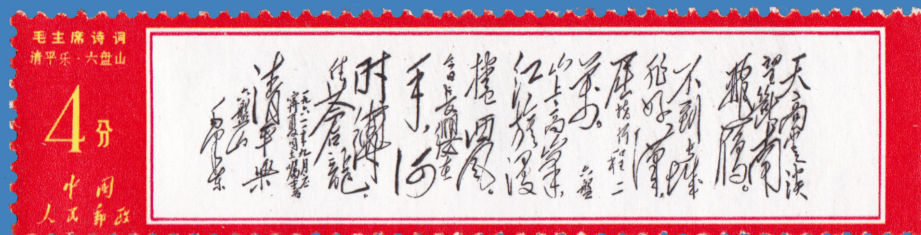 毛主席诗词
清平乐·六盘山
4分
中国
人民邮政
天高云淡
望断南
飞雁。
不到长城
非好汉,
屈指行程二
万。六盘
山上高峰
红旗漫
卷西风。
今日长缨在
手,何
时缚
住苍龙
一九六一年九月
清平乐
六盘山
毛泽东